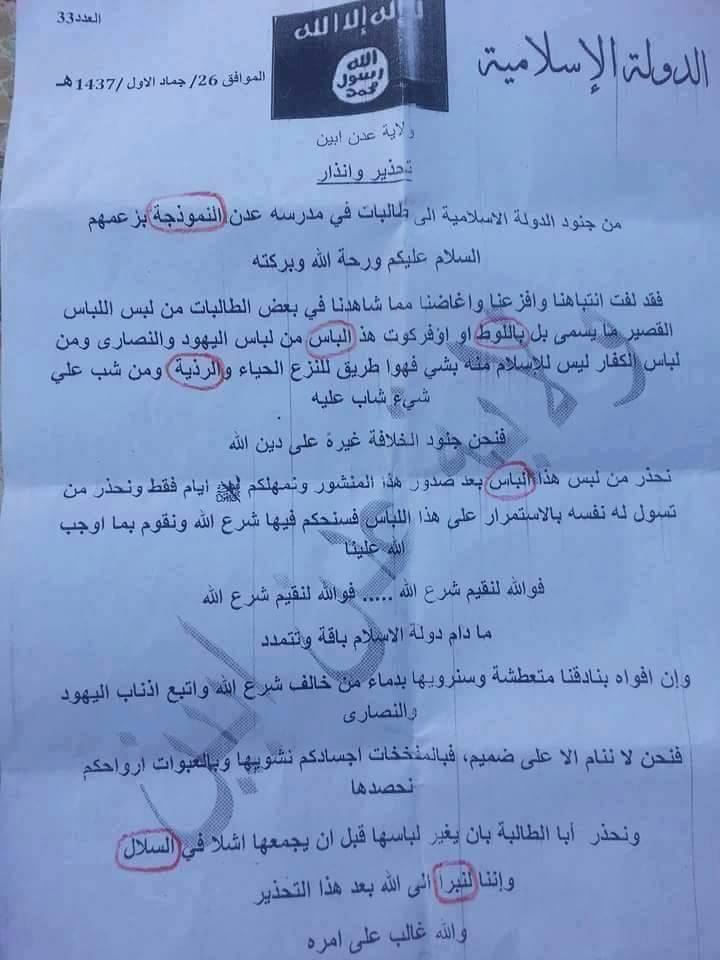 العدد33
لا إله إلا الله
الله
رسول
محمد
الدولة الإسلامية
الموافق 26/ جماد الاول /1437هـ
ولاية عدن ابين
تحذير وانذار
من جنود الدولة الاسلامية الى طالبات في مدرسه عدن النموذجة بزعمهم
السلام عليكم ورحة الله وبركته
فقد لفت انتباهنا وافزعنا واغاضنا مما شاهدنا في بعض الطالبات من لبس اللباس
القصير ما يسمى بل باللوط او اوفركوت هذ الباس من لباس اليهود والنصارى ومن
لباس الكفار ليس للإسلام منه بشي فهوا طريق للنزع الحياء والرذية ومن شب علي
شيء شاب عليه
فنحن جنود الخلافة غيرة على دين الله
نحذر من لبس هذا الباس بعد صدور هذا المنشور ونمهلكم ﷺ ايام فقط ونحذر من
تسول له نفسه بالاستمرار على هذا اللباس فسنحكم فيها شرع الله ونقوم بما اوجب
الله علينا
فوالله لنقيم شرع الله ..... فوالله لنقيم شرع الله
ما دام دولة الاسلام باقة وتتمدد
وإن افواه بنادقنا متعطشة وسنرويها بدماء من خالف شرع الله واتبع اذناب اليهود
والنصارى
فنحن لا ننام الا على ضميم، فبالمفخخات اجسادكم نشويها وبالعبوات ارواحكم
نحصدها
ونحذر أبا الطالبة بان يغير لباسها قبل ان يجمعها اشلا في السلال
وإننا لنبرا الى الله بعد هذا التحذير
والله غالب على امره
ولاية عدن ابين